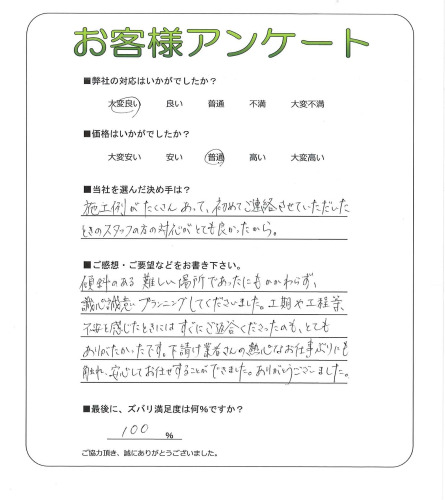 お客様アンケート
■弊社の対応はいかがでしたか?
大変良い 良い 普通 不満 大変不満
■価格はいかがでしたか?
大変安い 安い 普通 高い 大変高い
■当社を選んだ決め手は?
施工例がたくさんあって、初めてご連絡させていただいた
ときのスタッフの方の対応がとても良かったから。
■ご感想・ご要望などをお書き下さい。
傾斜のある難しい場所であったにもかかわらず、
誠心誠意プランニングしてくださいました。工期や工程等、
不安を感じたときにはすぐにご返答くださったのも、とても
ありがたかったです。下請け業者さんの熱心なお仕事ぶりにも
触れ、安心してお任せすることができました。ありがとうございました。
■最後に、ズバリ満足度は何%ですか?
100 %
ご協力頂き、誠にありがとうございました。